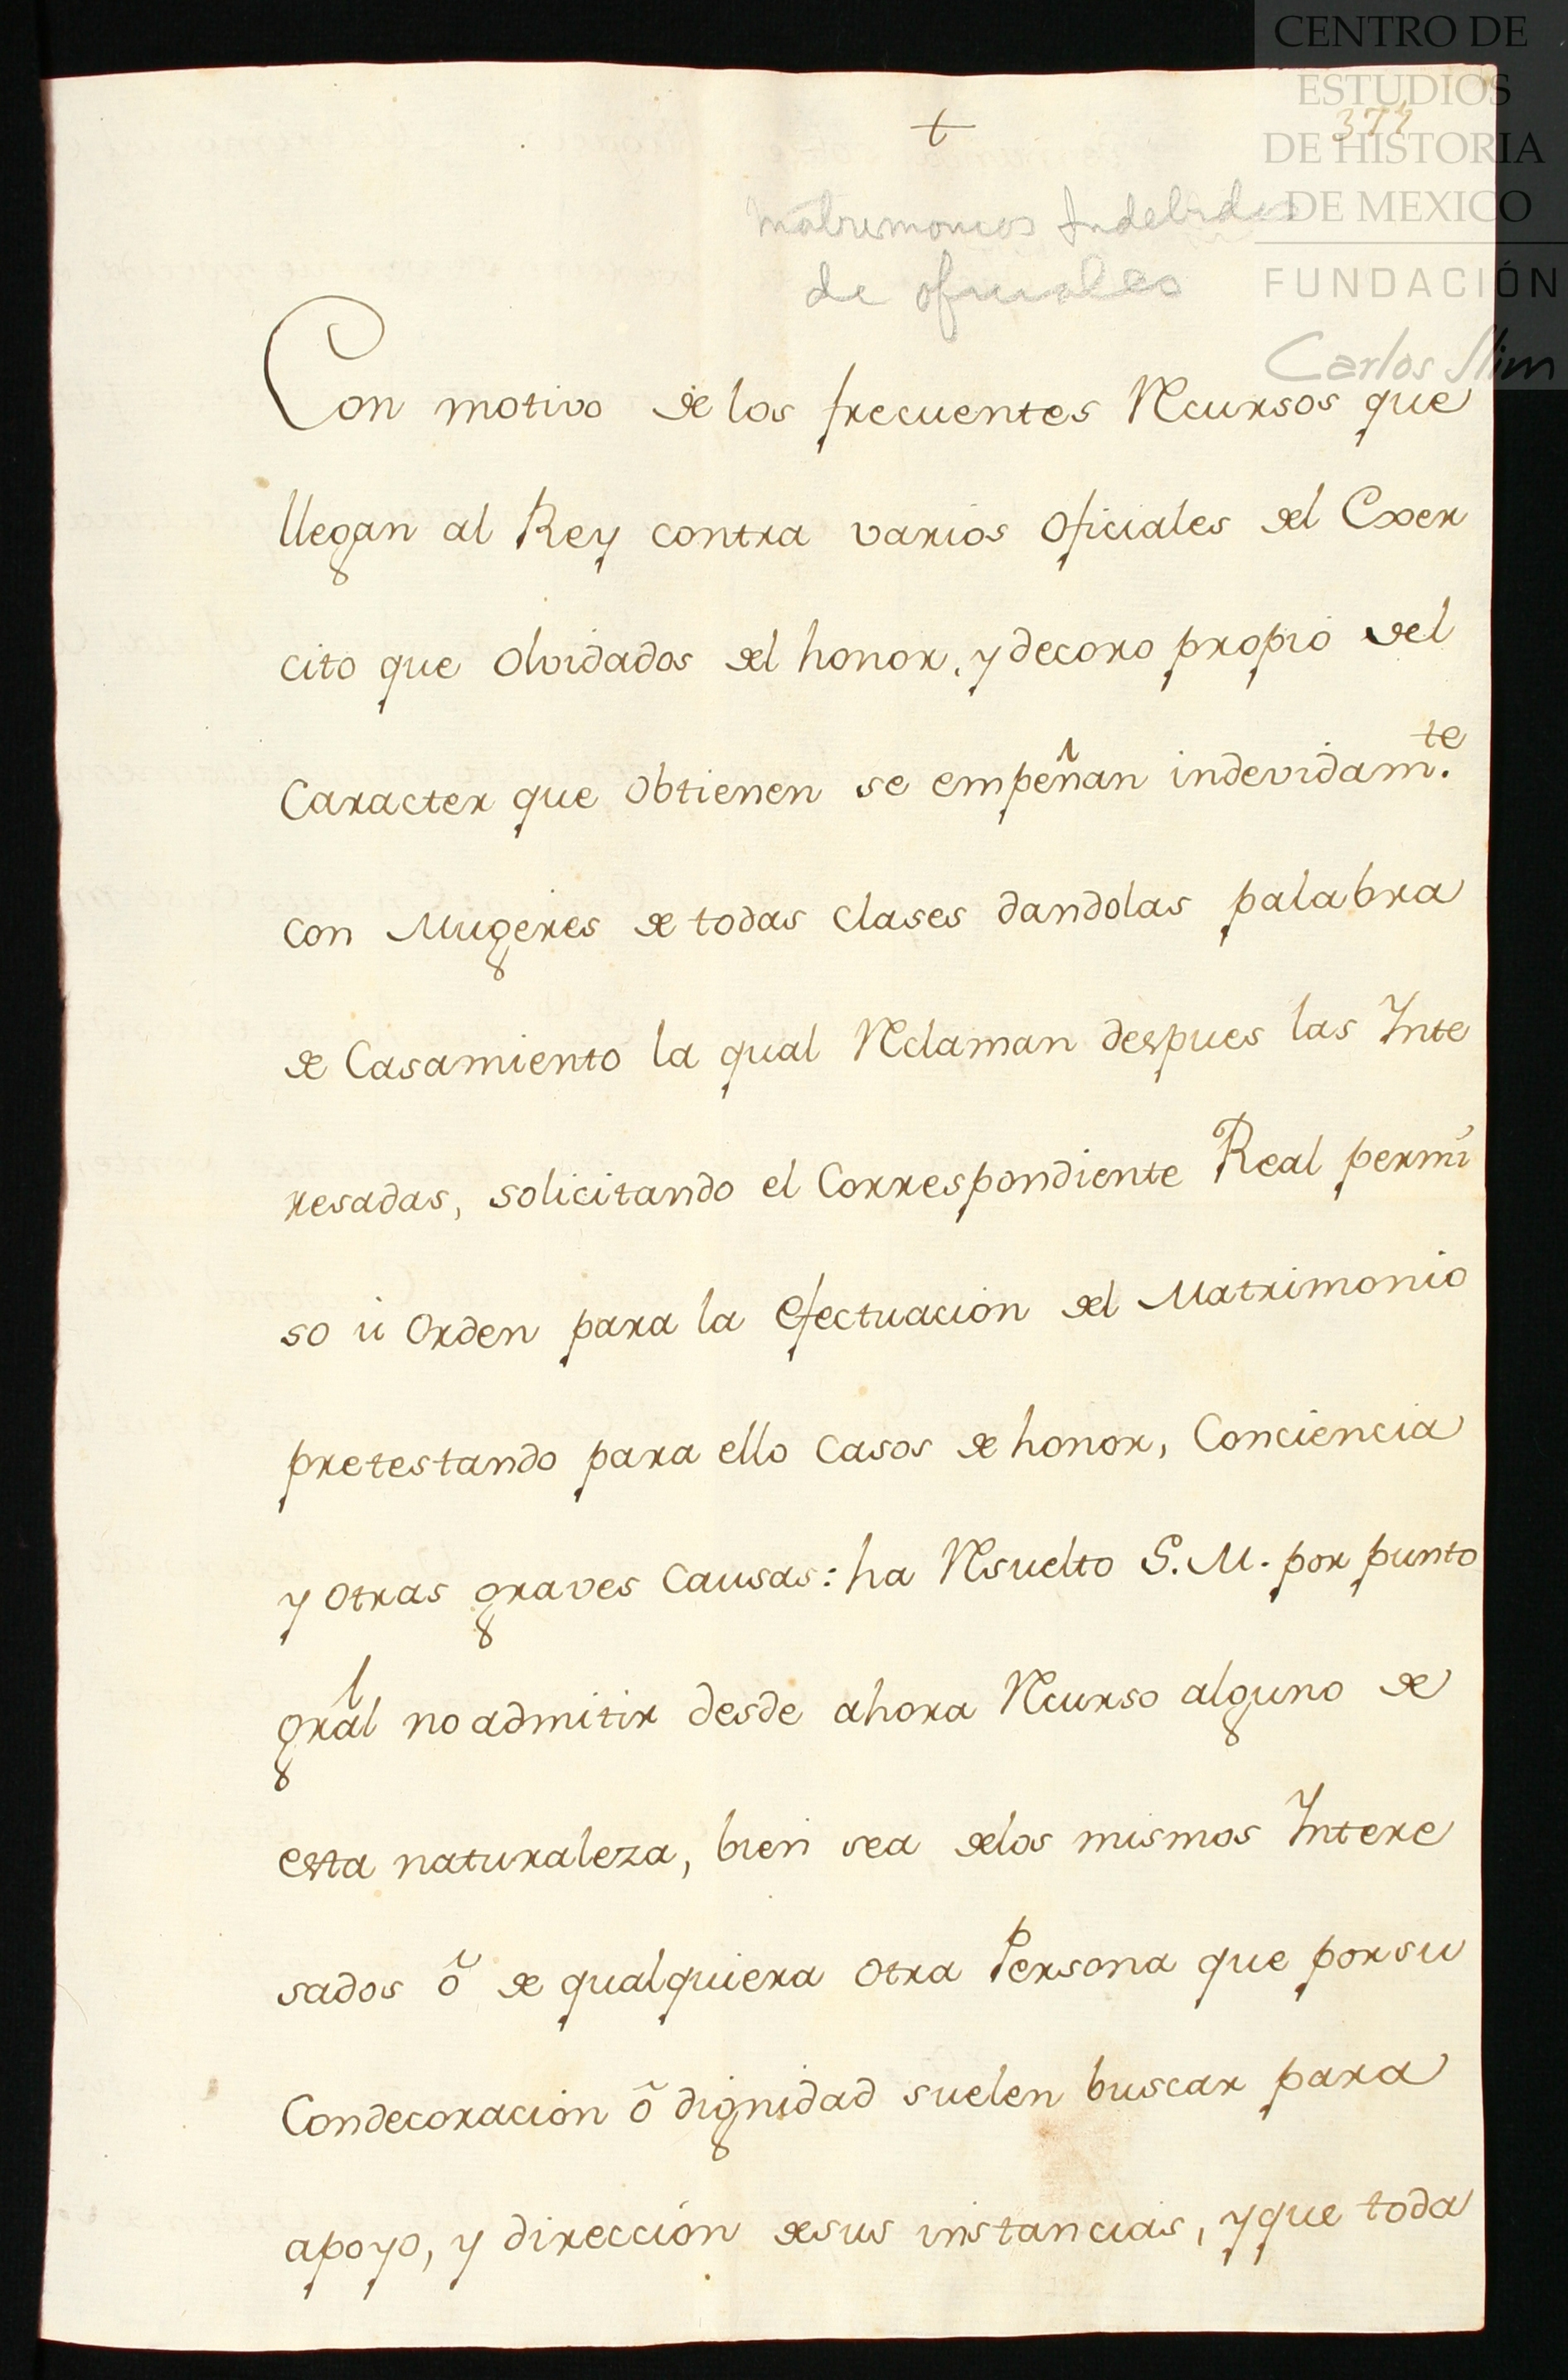 CENTRO DE
ESTUDIOS
DE HISTORIA
DE MEXICO
FUNDACIÓN
Carlos Slim
t
Matrimonios Indebidos
de oficiales
Con motivo de los frecuentes Recursos que
llegan al Rey contra varios oficiales del Exer
cito que olvidados del honor, y decoro propio del
Caracter que obtienen se empeñan indevidam.te
con Mugeres de todas clases dandolas palabra
de Casamiento la qual Reclaman despues las Inte
resadas, solicitando el Correspondiente Real permi
so ù orden para la efectuacion del Matrimonio
pretestando para ello casos de honor, Conciencia
y otras graves Causas: ha Resuelto S. M. por punto
gral no admitir desde ahora Recurso alguno de
esta naturaleza, bien sea delos mismos Intere
sados ô de qualquiera otra Persona que por su
Condecoracion ô dignidad suelen buscar para
apoyo, y direccion desus instancias, y que toda